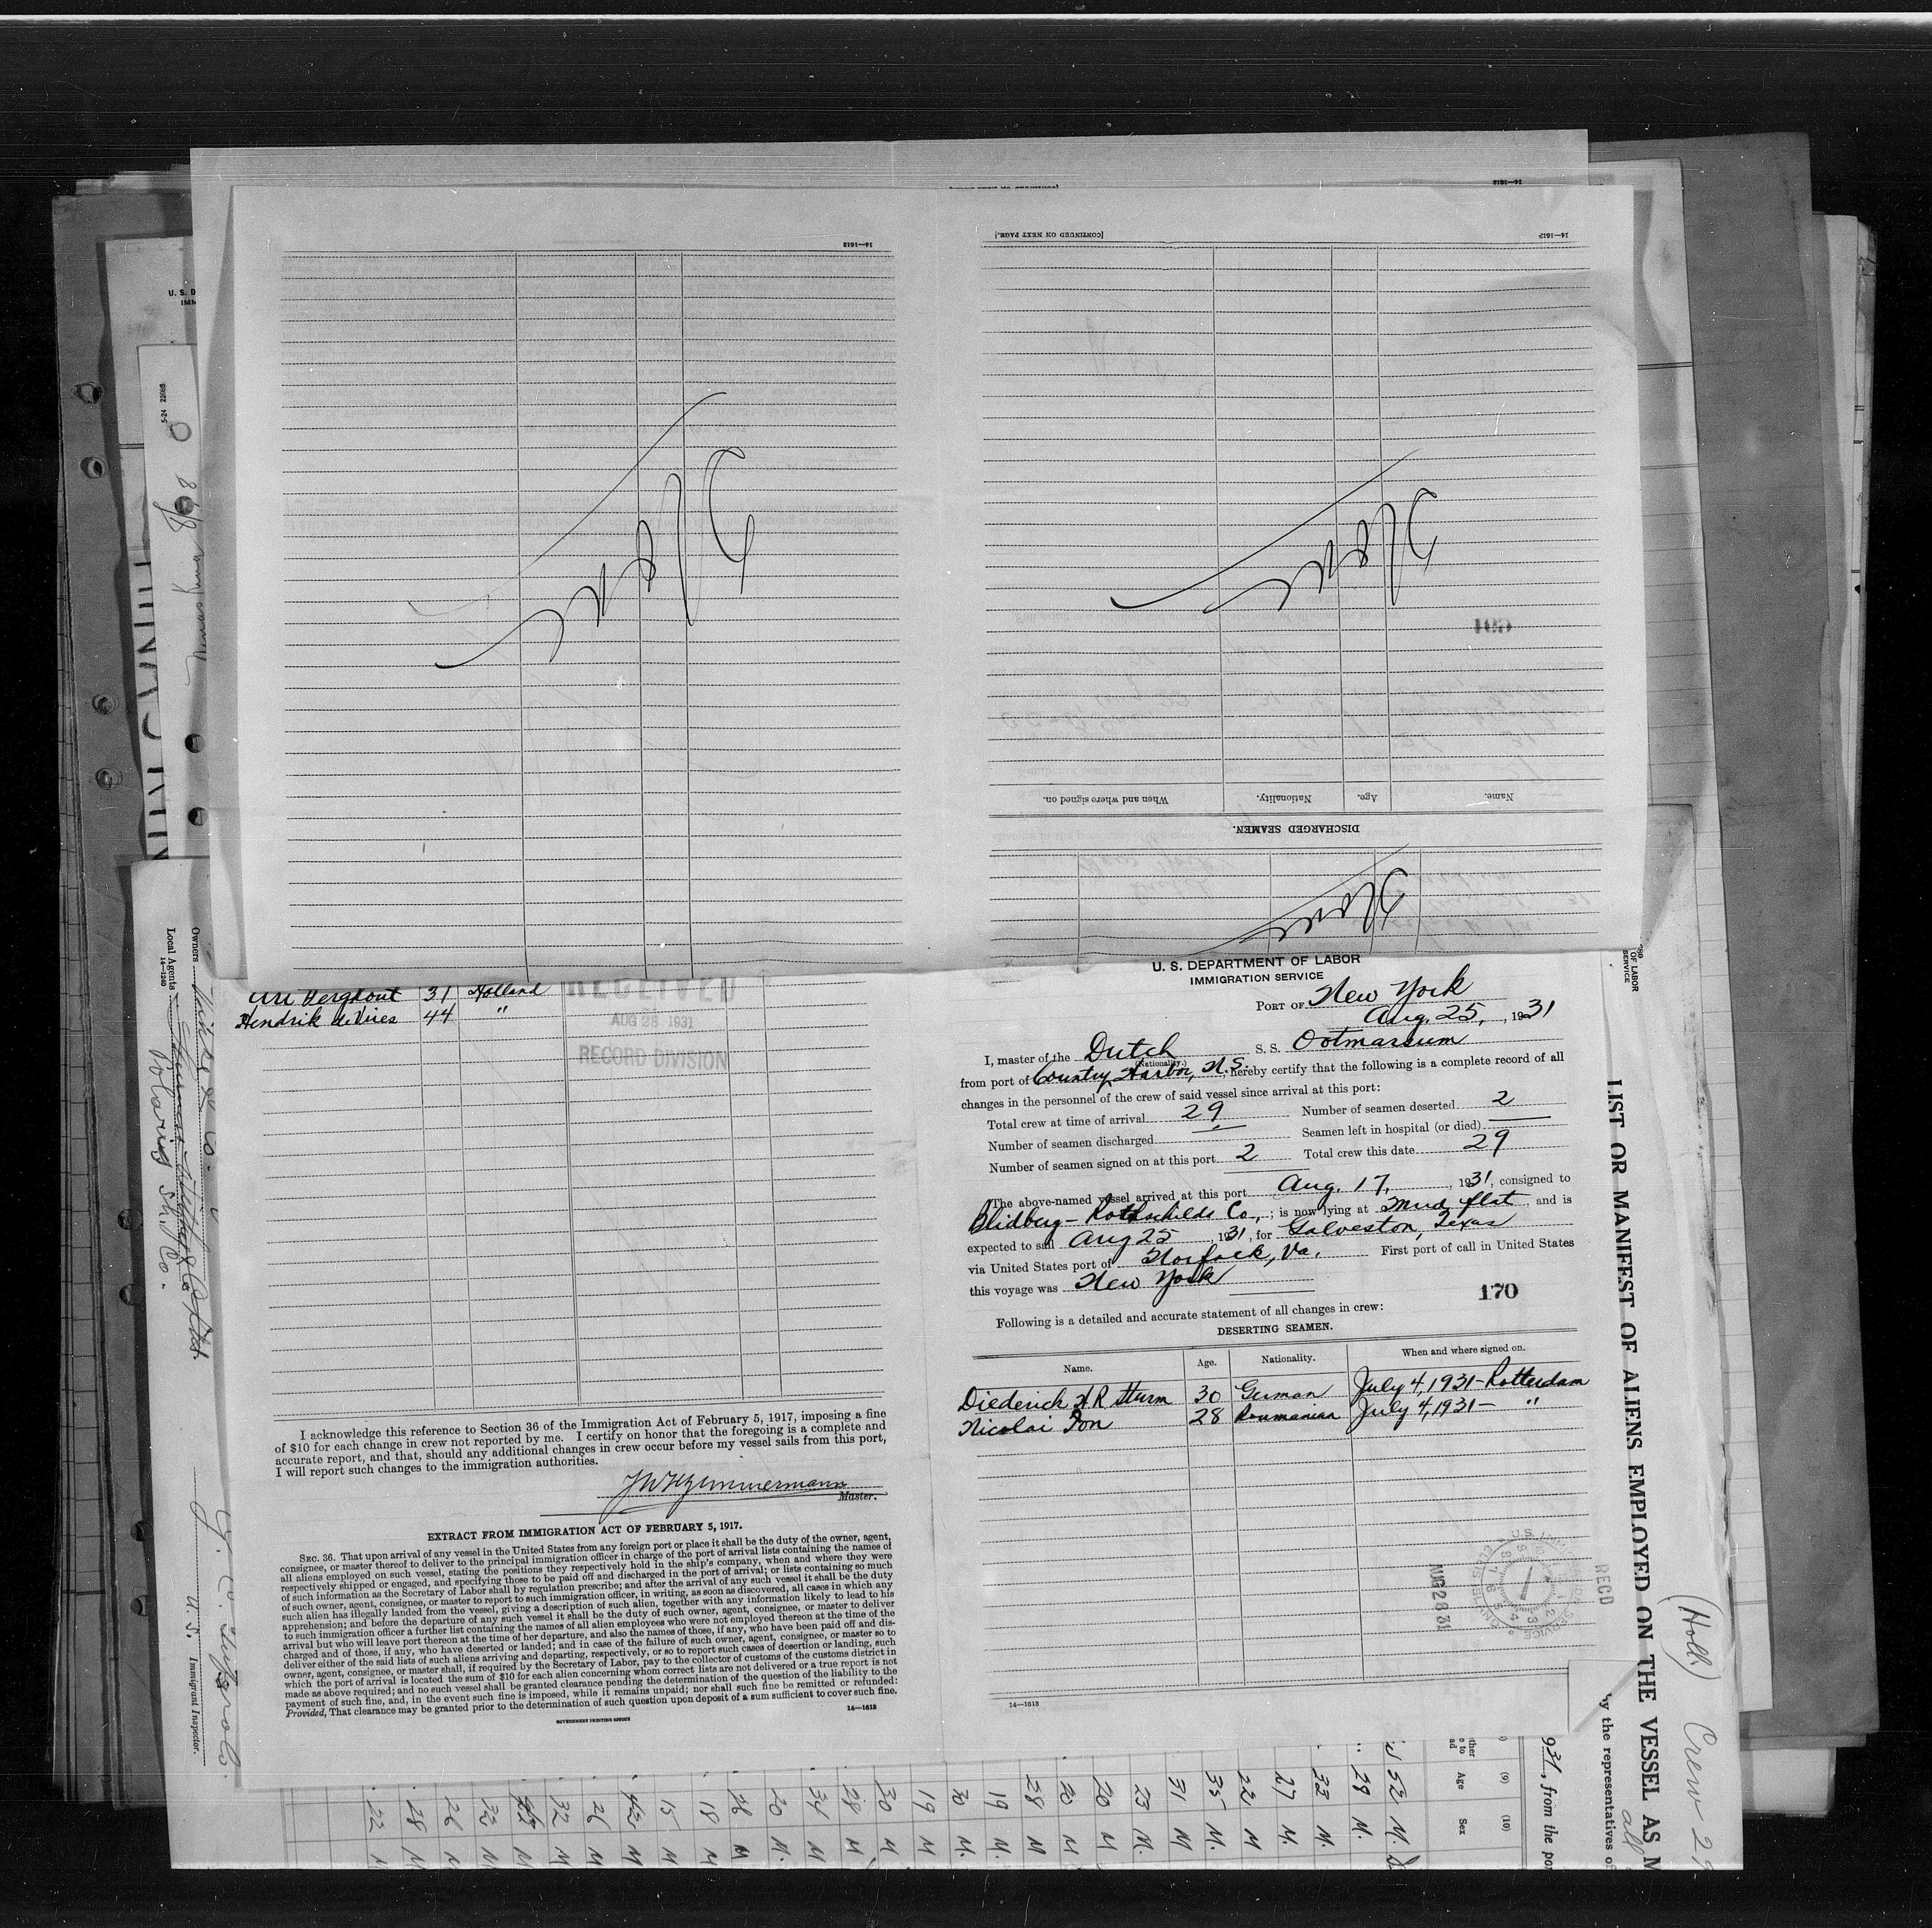 14—1613
[CONTINUED ON NEXT PAGE.]
14—1613
169
When and where signed on.
Nationality.
Age.
Name.
DISCHARGED SEAMEN.
U. S. DEPARTMENT OF LABOR
IMMIGRATION SERVICE
PORT OF New York
Aug. 25, , 1931
I, master of the Dutch S. S. Ootmarsum
(Nationality.)
from port of Country Harbor, N.S. , hereby certify that the following is a complete record of all
changes in the personnel of the crew of said vessel since arrival at this port:
Total crew at time of arrival 29 Number of seamen deserted 2
Number of seamen discharged Seamen left in hospital (or died)
Number of seamen signed on at this port 2 Total crew this date 29
The above-named vessel arrived at this port Aug. 17, , 1931, consigned to
Blidberg - Rothschilds Co., ; is now lying at Mud flat , and is
expected to sail Aug 25 , 1931, for Galveston, Texas
via United States port of Norfolk, Va. First port of call in United States
this voyage was New York
170
Following is a detailed and accurate statement of all changes in crew:
DESERTING SEAMEN.
Name. Age. Nationality. When and where signed on.
Diederich H R Sturm 30 German July 4, 1931 - Rotterdam
Nicolai Ion 28 Roumanian July 4, 1931 - "
AUG 28 31
RECD
14—1613
Ari Verghout 31 Holland
Hendrik de Vries 44 "
RECEIVED
AUG 28 1931
RECORD DIVISION
I acknowledge this reference to Section 36 of the Immigration Act of February 5, 1917, imposing a fine
of $10 for each change in crew not reported by me. I certify on honor that the foregoing is a complete and
accurate report, and that, should any additional changes in crew occur before my vessel sails from this port,
I will report such changes to the immigration authorities.
Master.
EXTRACT FROM IMMIGRATION ACT OF FEBRUARY 5, 1917.
SEC. 36. That upon arrival of any vessel in the United States from any foreign port or place it shall be the duty of the owner, agent,
consignee, or master thereof to deliver to the principal immigration officer in charge of the port of arrival lists containing the names of
all aliens employed on such vessel, stating the positions they respectively hold in the ship's company, when and where they were
respectively shipped or engaged, and specifying those to be paid off and discharged in the port of arrival; or lists containing so much
of such information as the Secretary of Labor shall by regulation prescribe; and after the arrival of any such vessel it shall be the duty
of such owner, agent, consignee, or master to report to such immigration officer, in writing, as soon as discovered, all cases in which any
such alien has illegally landed from the vessel, giving a description of such alien, together with any information likely to lead to his
apprehension; and before the departure of any such vessel it shall be the duty of such owner, agent, consignee, or master to deliver
to such immigration officer a further list containing the names of all alien employees who were not employed thereon at the time of the
arrival but who will leave port thereon at the time of her departure, and also the names of those, if any, who have been paid off and dis-
charged and of those, if any, who have deserted or landed; and in case of the failure of such owner, agent, consignee, or master so to
deliver either of the said lists of such aliens arriving and departing, respectively, or so to report such cases of desertion or landing, such
owner, agent, consignee, or master shall, if required by the Secretary of Labor, pay to the collector of customs of the customs district in
which the port of arrival is located the sum of $10 for each alien concerning whom correct lists are not delivered or a true report is not
made as above required; and no such vessel shall be granted clearance pending the determination of the question of the liability to the
payment of such fine, and, in the event such fine is imposed, while it remains unpaid; nor shall such fine be remitted or refunded:
Provided, That clearance may be granted prior to the determination of such question upon deposit of a sum sufficient to cover such fine.
GOVERNMENT PRINTING OFFICE
14—1613
LIST OR MANIFEST OF ALIENS EMPLOYED ON THE VESSEL AS M
by the representatives of
931, from the por
(Holl) Crew 29
Owners
Local Agents
14—1240
U. S. Immigrant Inspector.
(9) (10)
Age Sex
52 M.
29 M.
33 M.
27 M.
22 M
35 M.
31 M
23 M.
20 M
20 M
28 M
19 M.
30 M.
19 M
30 M
28 M
34 M
20 M.
26 M
18 M
15 M
42 M
26 M
32 M